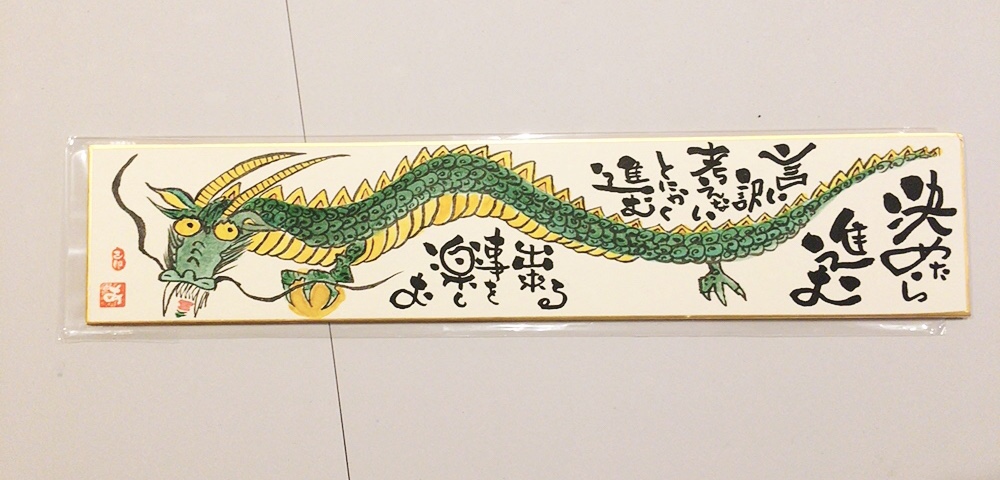 決めたら
進む
言い訳
考えない
とにかく
進む
出来る
事を
楽しむ